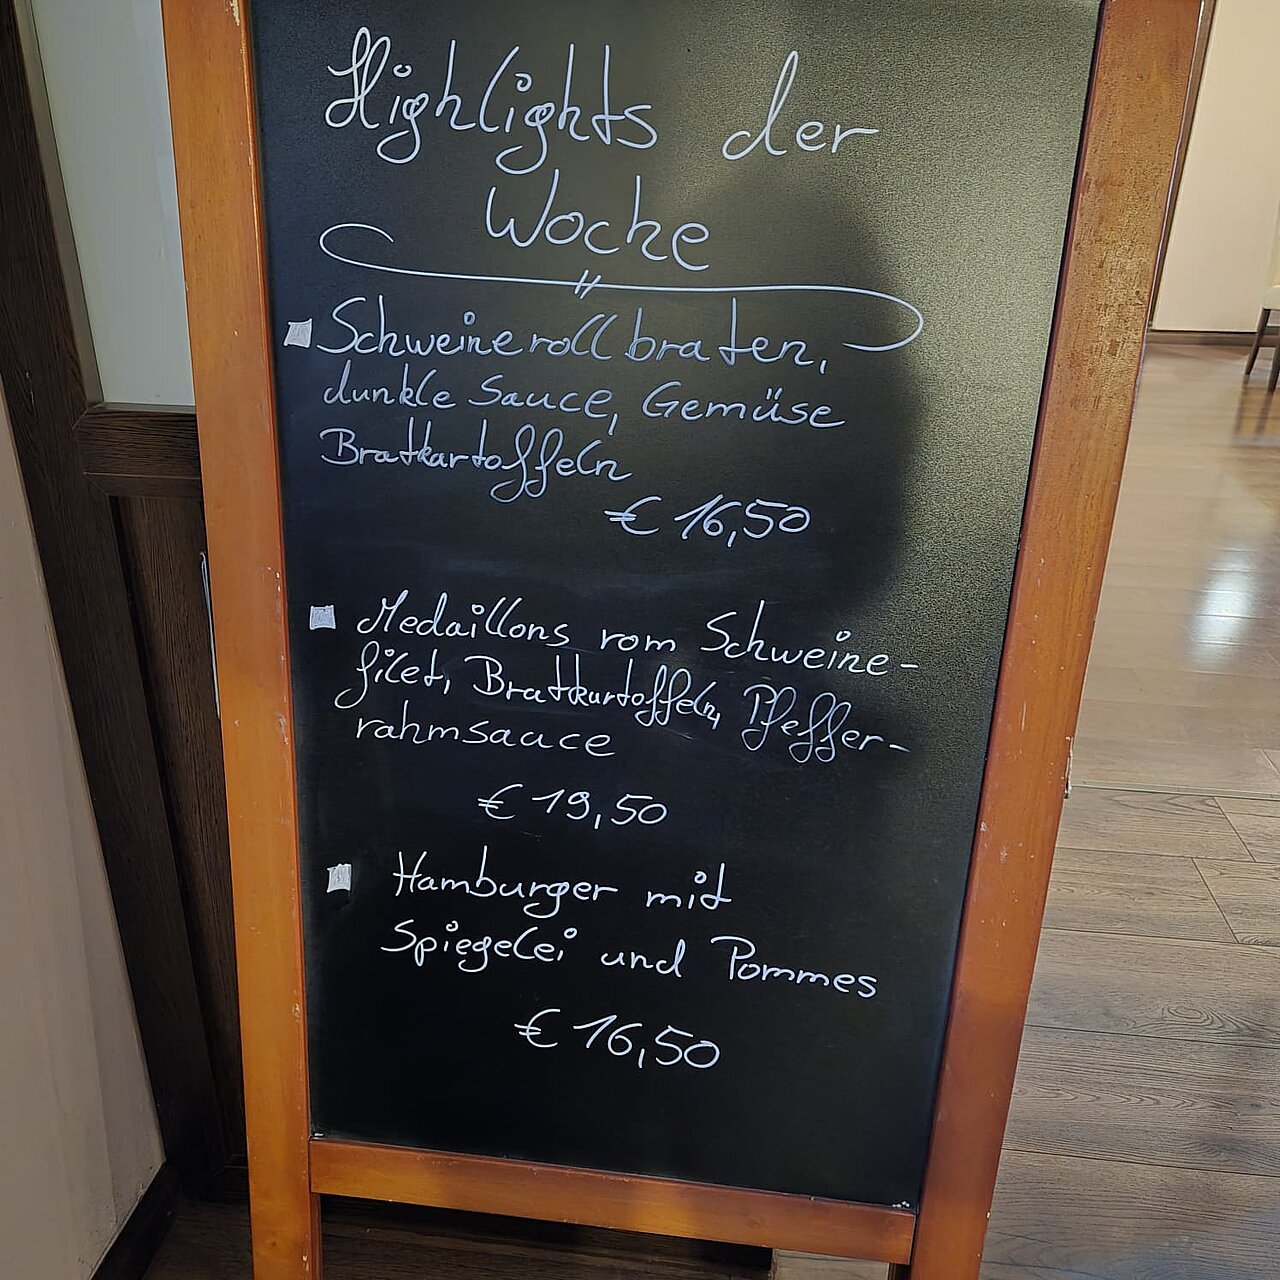 Highlights der
Woche
Schweinerollbraten,
dunkle Sauce, Gemüse
Bratkartoffeln
€ 16,50
Medaillons vom Schweine-
filet, Bratkartoffeln, Pfeffer-
rahmsauce
€ 19,50
Hamburger mit
Spiegelei und Pommes
€ 16,50